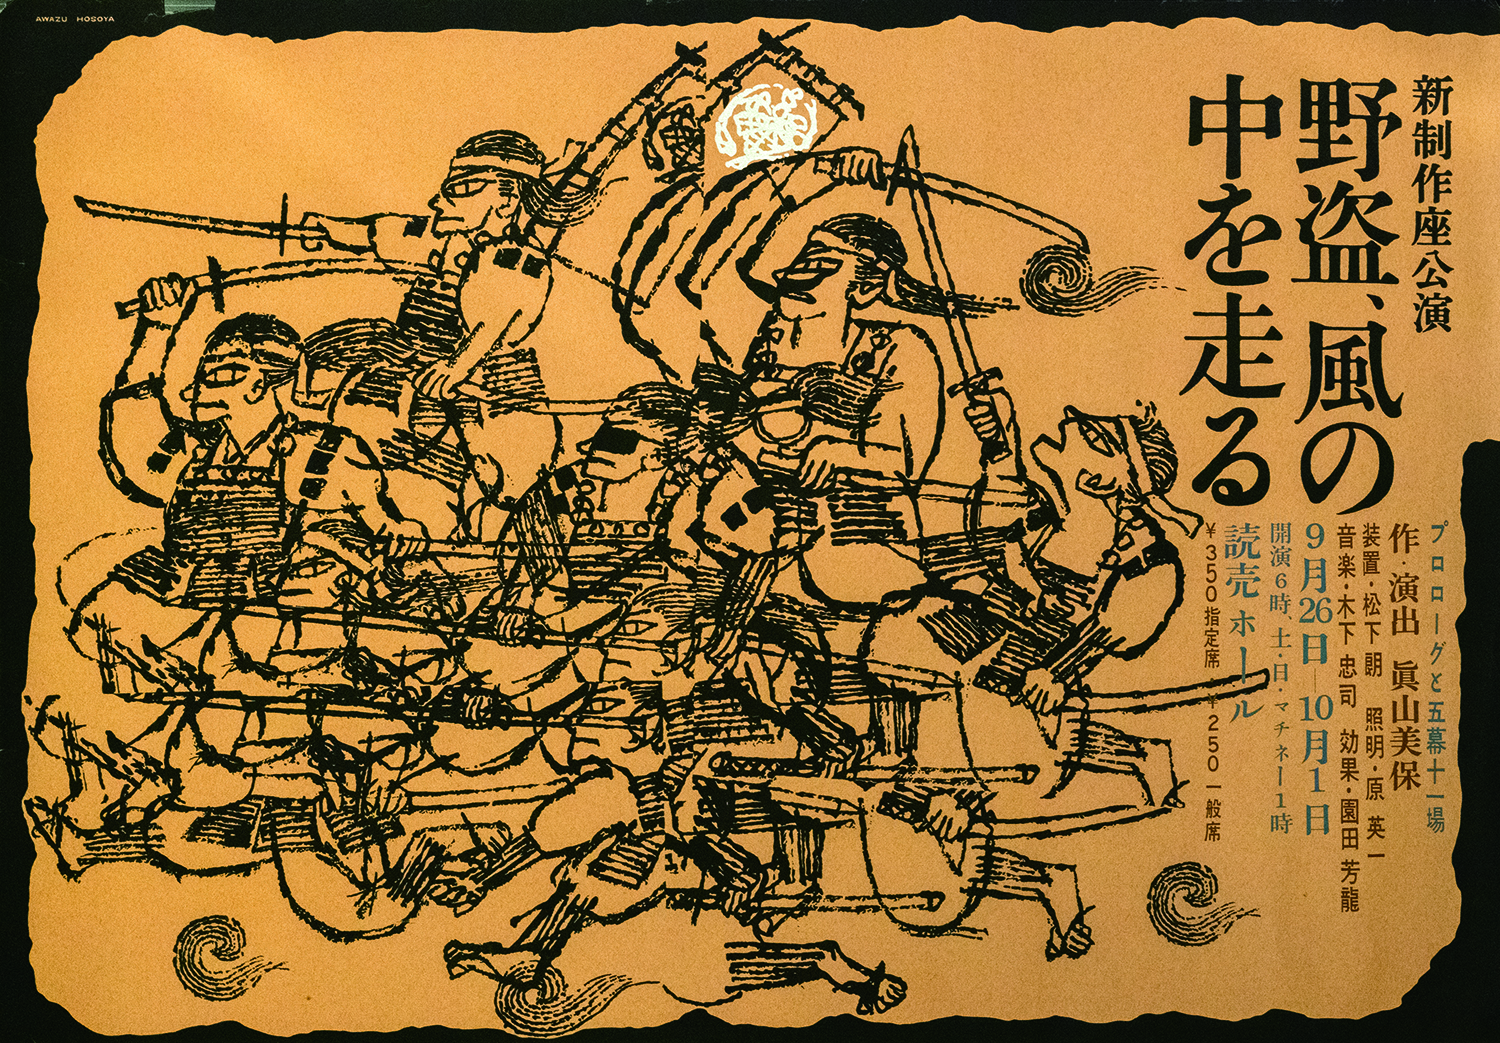 AWAZU HOSOYA
新制作座公演
野盗、風の
中を走る
プロローグと五幕十一場
作・演出 眞山美保
装置・松下朗 照明・原英一
音楽・木下忠司 効果・園田芳龍
9月26日—10月1日
開演6時、土・日・マチネー1時
読売ホール
¥350指定席・¥250一般席